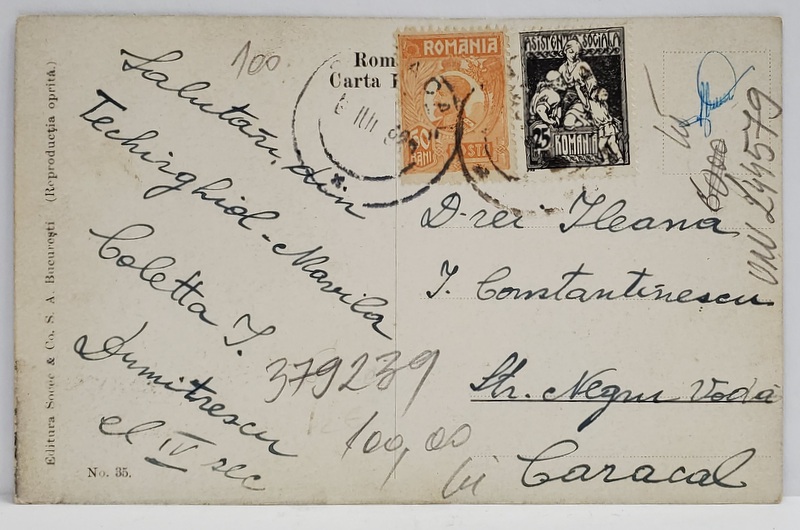 100
Rom
Carta
ROMANIA
50
BANI
POSTA
ASISTENTA SOCIALA
25
ROMANIA
Salutări, din
Techirghiol-Movila
Coletta I.
Dumitrescu
el IV sec
D-rei Ileana
I. Constantinescu
Str. Negru Vodă
Caracal
379239
100,00
244579
Editura Socec & Co. S. A. București (Reproducția oprită.)
No. 35.